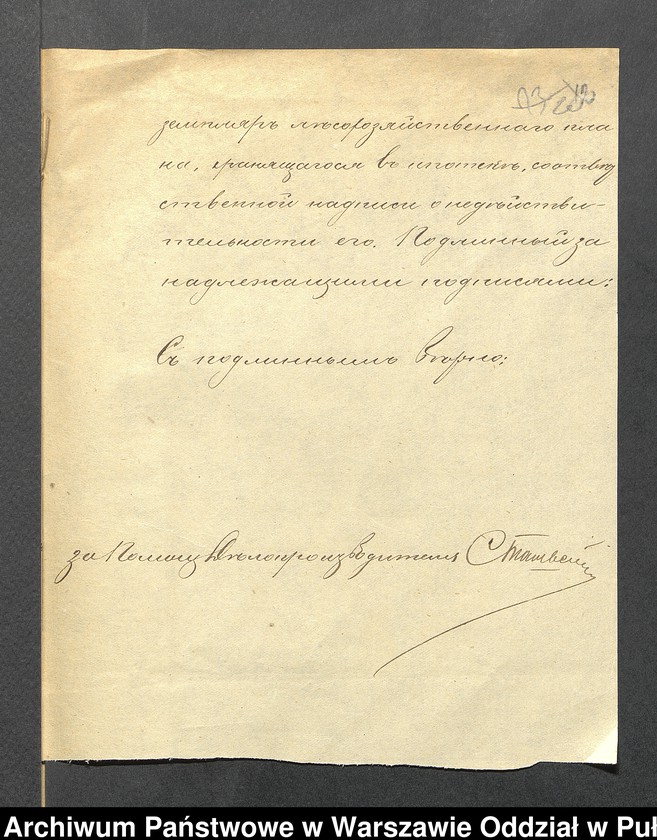 земпляръ лѣсохозяйственнаго пла
на, хранящагося въ ипотекѣ, соотвѣт
ственной надписи о недѣйстви-
тельности его. Подлинный за
надлежащими подписями:
Съ подлиннымъ вѣрно:
за Помощ Дѣлопроизводителя
Archiwum Państwowe w Warszawie Oddział w Puł